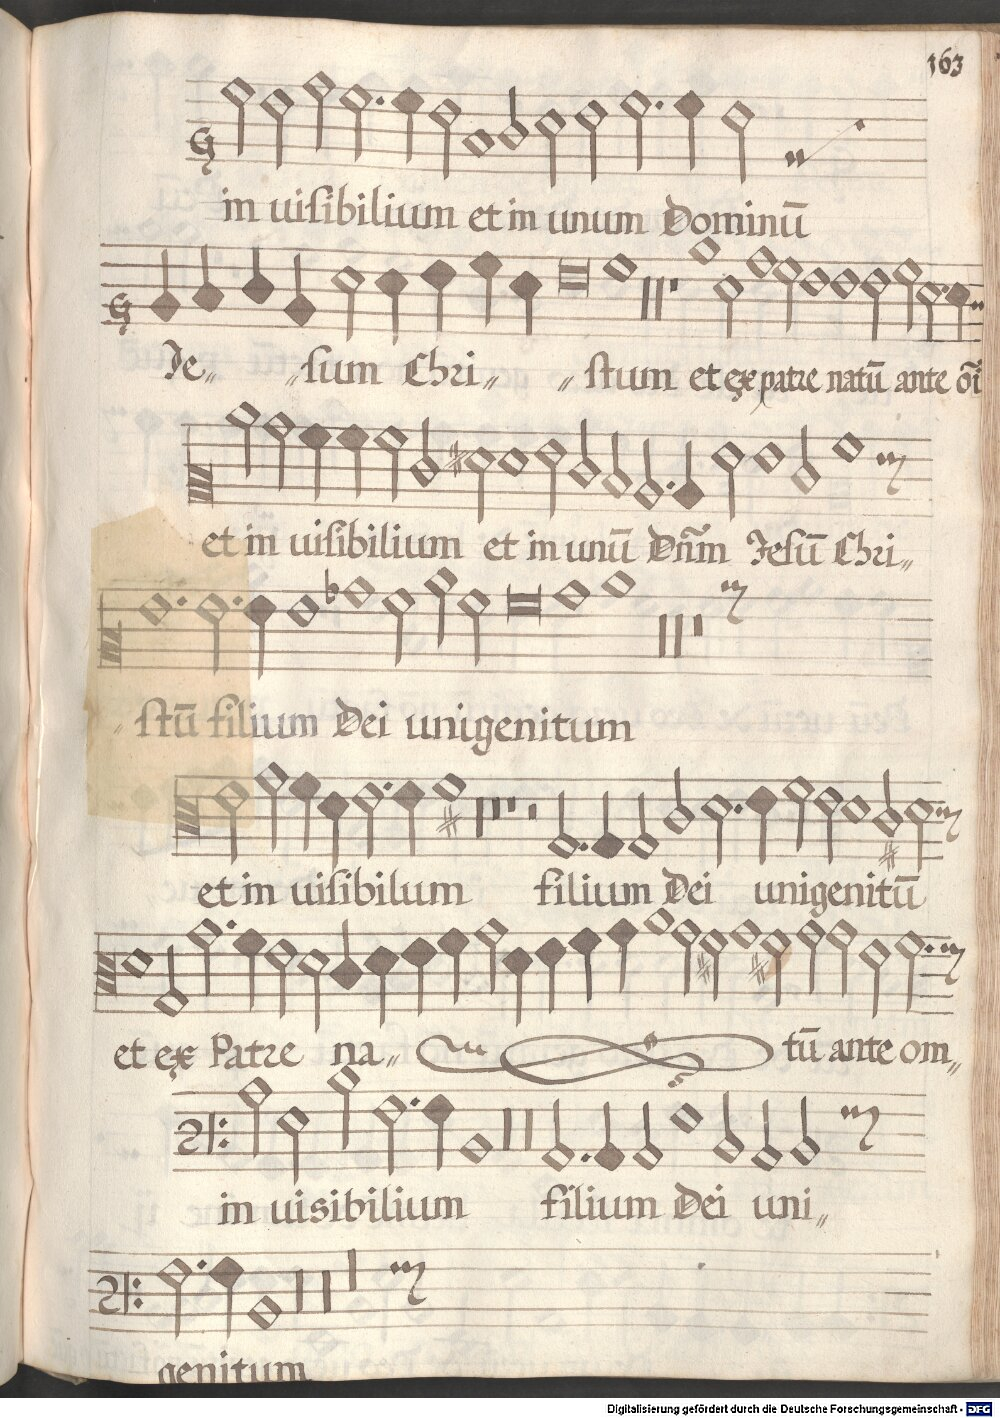 163
in uisibilium et in unum Dominū
Je„ „sum Chri„ „stum et ex patre natū ante oī
et in uisibilium et in unū Dn̄m Jesū Chri„
„stū filium Dei unigenitum
et in uisibilum filium Dei unigenitū
et ex Patre na„ tū ante om„
in uisibilium filium Dei uni„
genitum
Digitalisierung gefördert durch die Deutsche Forschungsgemeinschaft - DFG